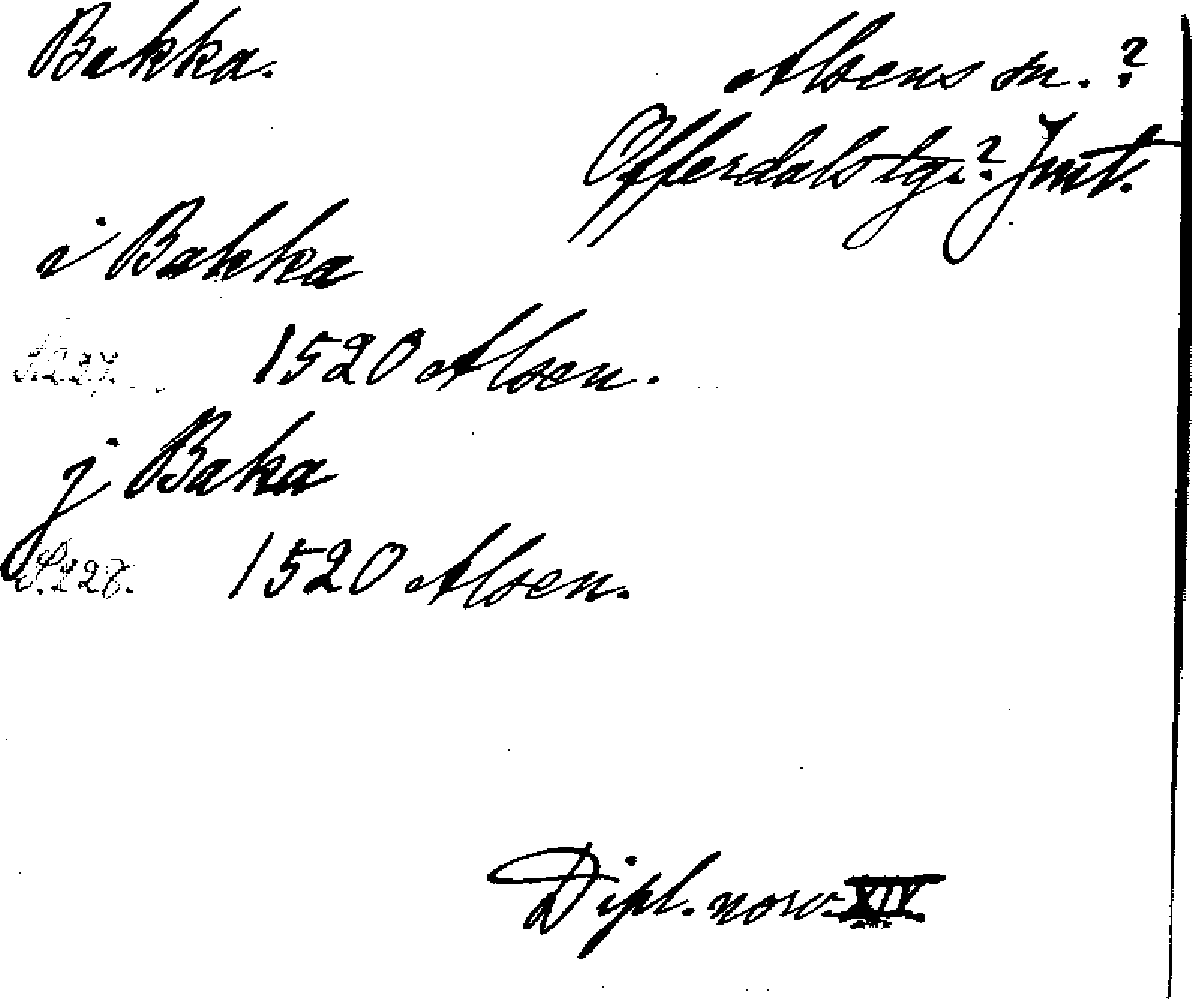 Bakka.
Alsens sn.?
Offerdals tg.? Jmt.
i Bakka
S. 227. 1520 Alsen.
j Baka
S. 228. 1520 Alsen.
Dipl. norv. XIV.